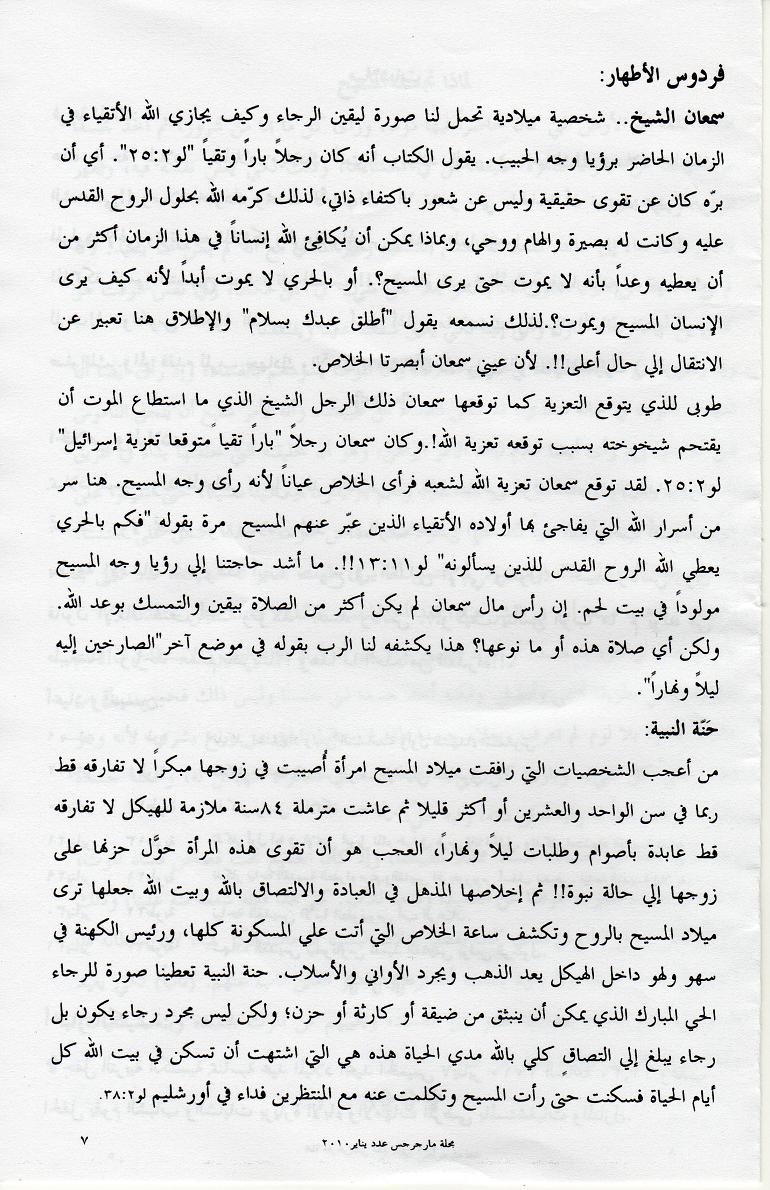 فردوس الأطهار:
سمعان الشيخ.. شخصية ميلادية تحمل لنا صورة ليقين الرجاء وكيف يجازي الله الأتقياء في
الزمان الحاضر برؤيا وجه الحبيب. يقول الكتاب أنه كان رجلاً باراً وتقياً "لو٢:٢٥". أي أن
برّه كان عن تقوى حقيقية وليس عن شعور باكتفاء ذاتي، لذلك كرّمه الله بحلول الروح القدس
عليه وكانت له بصيرة والهام ووحي، وبماذا يمكن أن يُكافِئ الله إنساناً في هذا الزمان أكثر من
أن يعطيه وعداً بأنه لا يموت حتى يرى المسيح؟. أو بالحري لا يموت أبداً لأنه كيف يرى
الإنسان المسيح ويموت؟.لذلك نسمعه يقول "أطلق عبدك بسلام" والإطلاق هنا تعبير عن
الانتقال إلي حال أعلى!!. لأن عيني سمعان أبصرتا الخلاص.
طوبى للذي يتوقع التعزية كما توقعها سمعان ذلك الرجل الشيخ الذي ما استطاع الموت أن
يقتحم شيخوخته بسبب توقعه تعزية الله!.وكان سمعان رجلاً "باراً تقياً متوقعا تعزية إسرائيل"
لو٢:٢٥. لقد توقع سمعان تعزية الله لشعبه فرأى الخلاص عياناً لأنه رأى وجه المسيح. هنا سر
من أسرار الله التي يفاجئ بها أولاده الأتقياء الذين عبّر عنهم المسيح مرة بقوله "فكم بالحري
يعطي الله الروح القدس للذين يسألونه" لو١١:١٣!!. ما أشد حاجتنا إلي رؤيا وجه المسيح
مولوداً في بيت لحم. إن رأس مال سمعان لم يكن أكثر من الصلاة بيقين والتمسك بوعد الله.
ولكن أي صلاة هذه أو ما نوعها؟ هذا يكشفه لنا الرب بقوله في موضع آخر"الصارخين إليه
ليلاً ونهاراً".
حَنّة النبية:
من أعجب الشخصيات التي رافقت ميلاد المسيح امرأة أُصيبت في زوجها مبكراً لا تفارقه قط
ربما في سن الواحد والعشرين أو أكثر قليلا ثم عاشت مترملة ٨٤سنة ملازمة للهيكل لا تفارقه
قط عابدة بأصوام وطلبات ليلاً ونهاراً، العجب هو أن تقوى هذه المرأة حوَّل حزنها على
زوجها إلي حالة نبوة!! ثم إخلاصها المذهل في العبادة والالتصاق بالله وبيت الله جعلها ترى
ميلاد المسيح بالروح وتكشف ساعة الخلاص التي أتت علي المسكونة كلها، ورئيس الكهنة في
سهو ولهو داخل الهيكل يعد الذهب ويجرد الأواني والأسلاب. حنة النبية تعطينا صورة للرجاء
الحي المبارك الذي يمكن أن ينبثق من ضيقة أو كارثة أو حزن؛ ولكن ليس مجرد رجاء يكون بل
رجاء يبلغ إلي التصاقٍ كلي بالله مدي الحياة هذه هي التي اشتهت أن تسكن في بيت الله كل
أيام الحياة فسكنت حتى رأت المسيح وتكلمت عنه مع المنتظرين فداء في أورشليم لو٢:٣٨.
مجلة مارجرجس عدد يناير٢٠١٠
٧